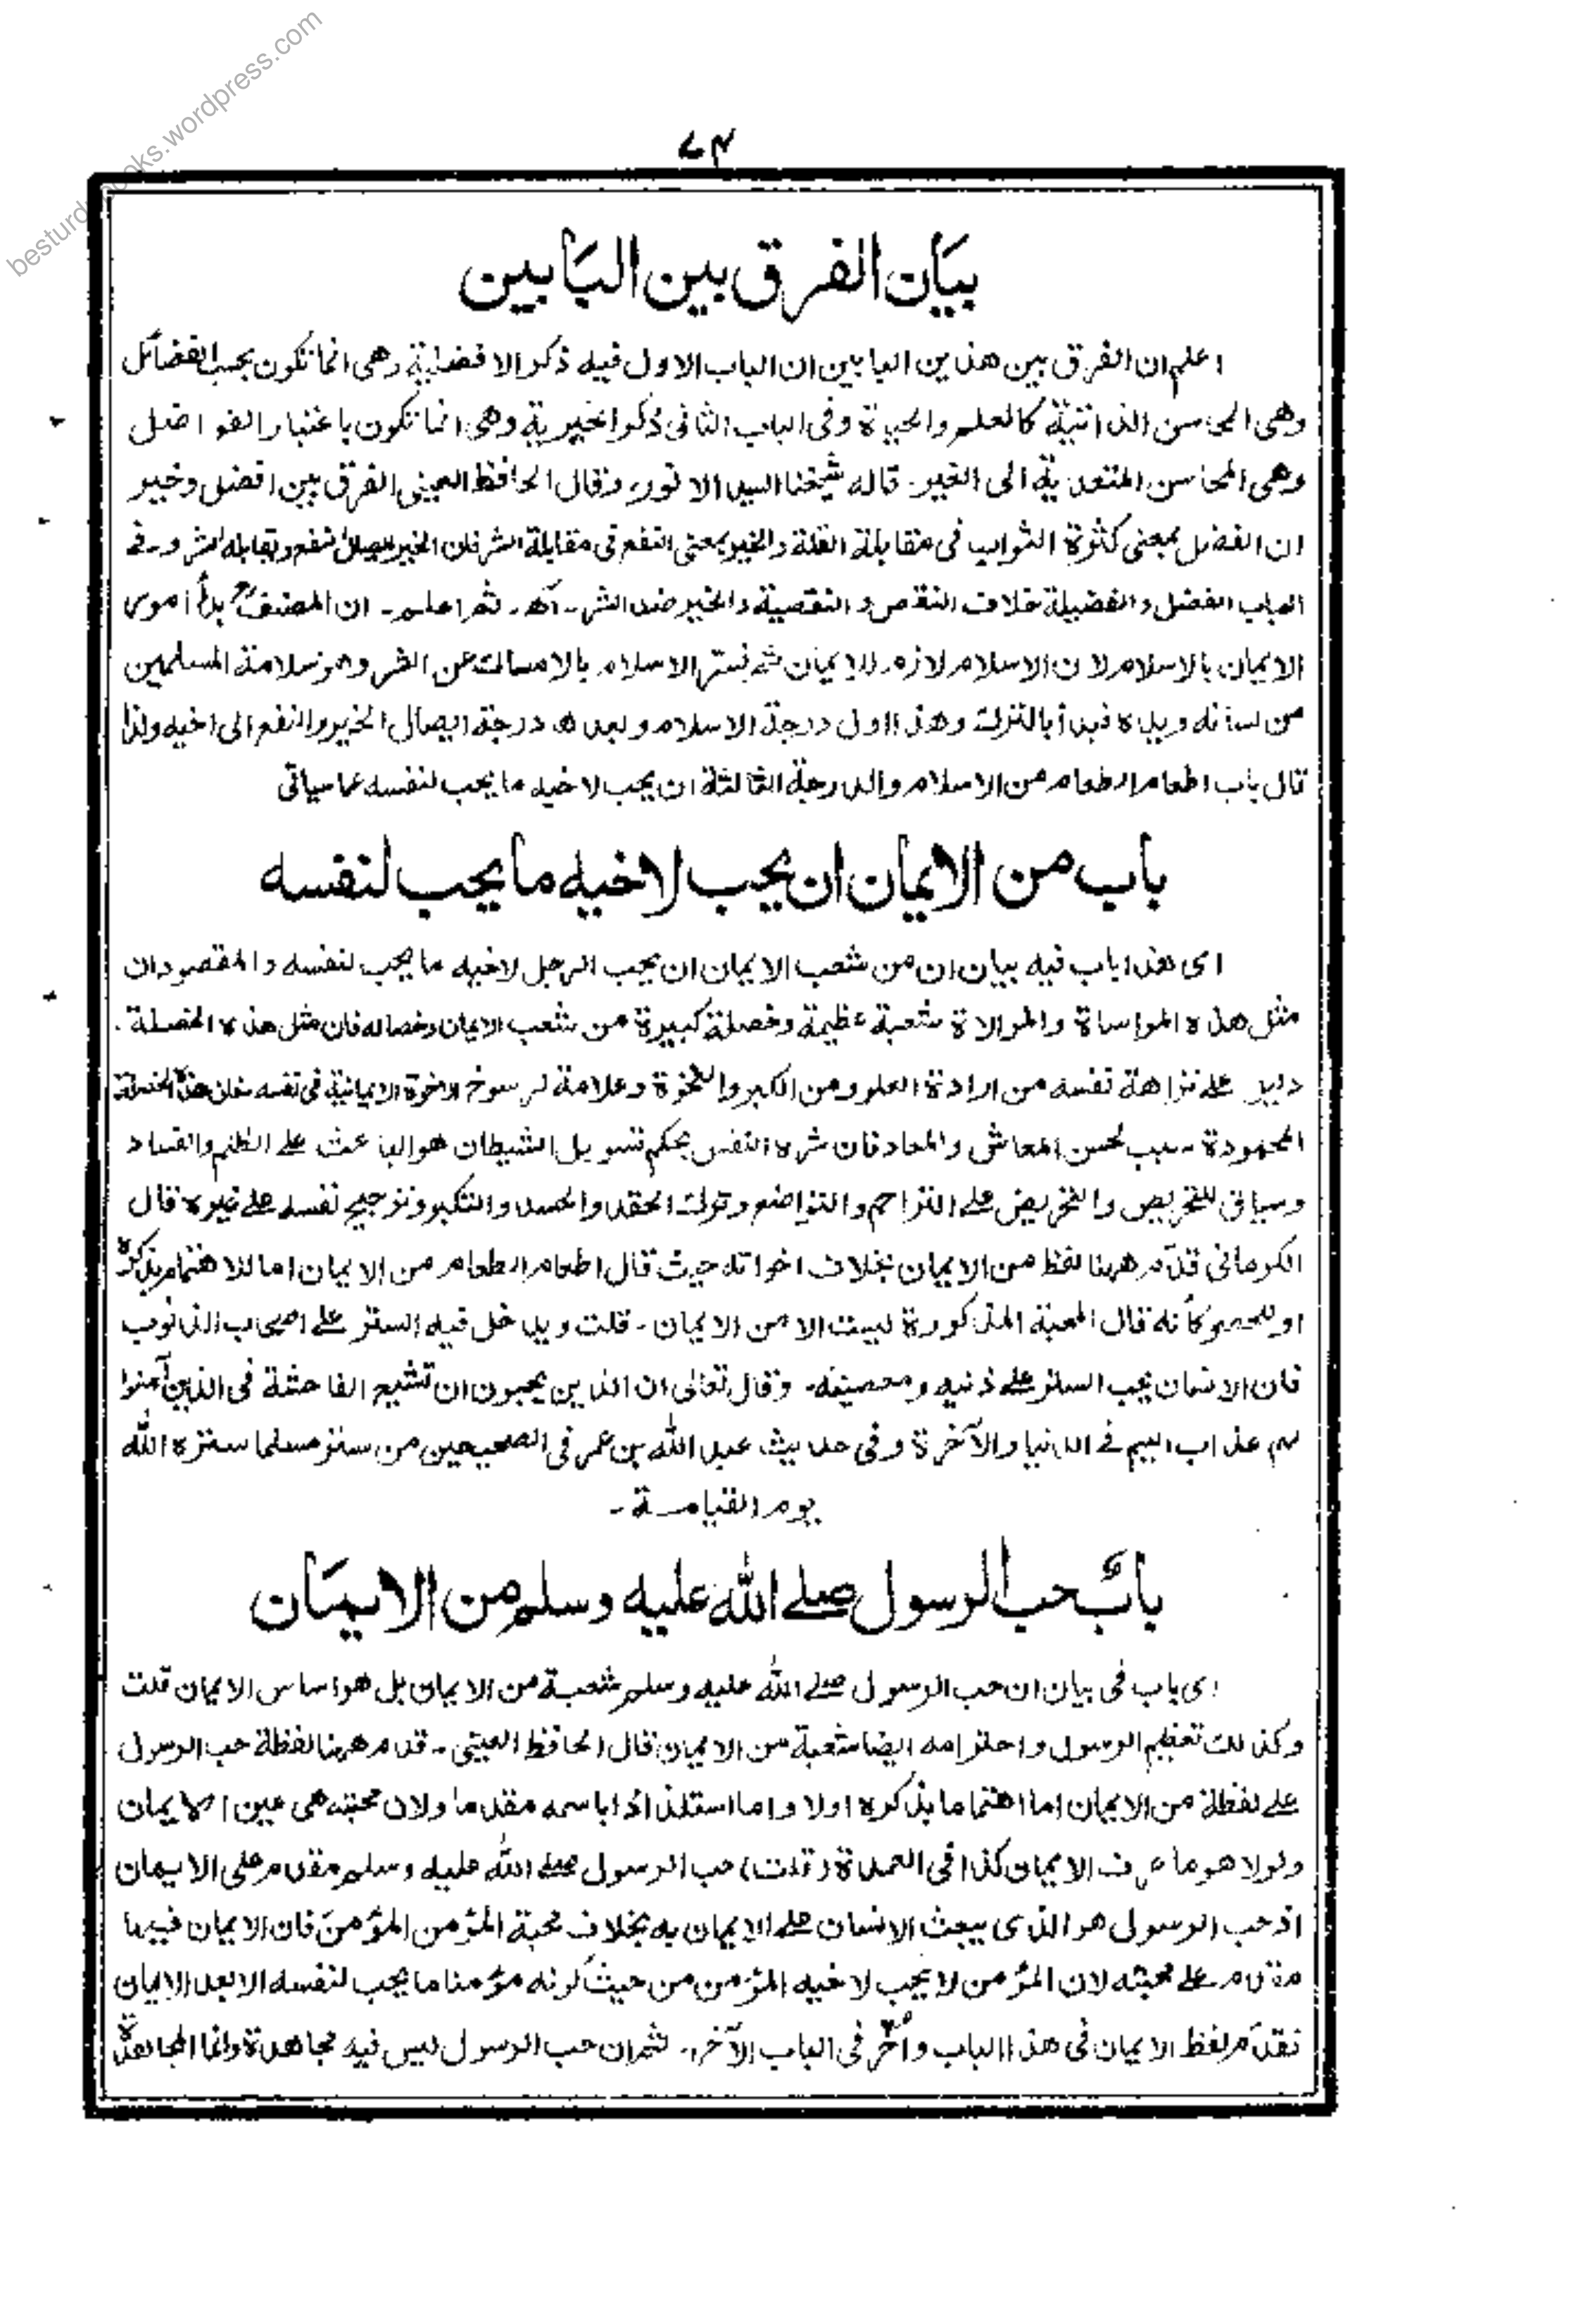 besturdubooks.wordpress.com
٧٤
بيان الفرق بين البابين
اعلم ان الفرق بين هذين البابين ان الباب الاول فيه ذكر الافضلية وهى انما تكون بحسب الفضائل
وهى المحاسن الذاتية كالعلم والحياة وفى الباب الثانى ذكر الخيرية وهى انما تكون باعتبار الفواضل
وهى المحاسن المتعدية الى الغير۔ قاله شيخنا السيد الانور، وقال الحافظ العينى الفرق بين افضل وخير
ان الفضل بمعنى كثرة الثواب فى مقابلة القلة والخير بمعنى النفع فى مقابلة الشر فان الخير ايصال نفع ويقابله الشر و۔ فى
العباب الفضل والفضيلة خلاف النقص و النقصية والخير ضد الشر۔ اھ۔ ثم اعلم۔ ان المصنفؒ بدأ امور
الايمان بالاسلام لان الاسلام لازم للايمان ثم فسر الاسلام بالامساك عن الشر وهو سلامة المسلمين
من لسانه ويده فبدأ بالترك وهذا اول درجة الاسلام وبعده درجة ايصال الخير والنفع الى اخيه ولذا
قال باب اطعام الطعام من الاسلام والدرجة الثالثة ان يحب لاخيه ما يحب لنفسه عما سياتى
باب من الايمان ان يحب لاخيه ما يحب لنفسه
اى هذا باب فيه بيان ان من شعب الايمان ان يحب الرجل لاخيه ما يحب لنفسه والمقصود ان
مثل هذه المواساة والموالاة شعبة عظيمة وخصلة كبيرة من شعب الايمان وخصاله فان مثل هذه الخصلة۔
دليل على نزاهة نفسه من ارادة العلو ومن الكبر والنخوة وعلامة لرسوخ الاخوة الايمانية فى نفسه هذه الخصلة
المحمودة سبب لحسن المعاش والمعاد فان شره النفس بحكم تسويل الشيطان هو الباعث على الظلم والفساد
وسياتى للتحريص والتحريض على التراحم والتواضع وترك الحقد والحسد والتكبر وترجيح نفسه على غيره قال
الكرمانى قدّم ههنا لفظ من الايمان بخلاف اخواته حيث قال اطعام الطعام من الايمان اما للاهتمام بذكره
او للحصر كأنه قال المحبة المذكورة ليست الا من الايمان۔ قلت ويدخل فيه الستر على اصحاب الذنوب
فان الانسان يحب الستر على ذنبه ومعصيته۔ وقال تعالى ان الذين يحبون ان تشيع الفاحشة فى الذين آمنوا
لهم عذاب اليم فى الدنيا والآخرة وفى حديث عبد الله بن عمر فى الصحيحين من ستر مسلما ستره الله
يوم القيامة۔
بابٌ حب الرسول صلى الله عليه وسلم من الايمان
اى باب فى بيان ان حب الرسول صلى الله عليه وسلم شعبة من الايمان بل هو اساس الايمان قلت
وكذلك تعظيم الرسول واحترامه ايضا شعبة من الايمان قال الحافظ العينى۔ قدم ههنا لفظة حب الرسول
على لفظة من الايمان اما اهتماما بذكره اولا واما استلذاذا باسمه مقدما ولان محبته هى عين الايمان
ولولا هو ما عرف الايمان كذا فى العمدة (قلت) حب الرسول صلى الله عليه وسلم مقدم على الايمان
اذ حب الرسول هو الذى يبعث الانسان على الايمان به بخلاف محبة المؤمن المؤمن فان الايمان فيها
مقدم على محبته لان المؤمن لا يحب لاخيه المؤمن من حيث كونه مؤمنا ما يحب لنفسه الا بعد الايمان
فقدّم لفظ الايمان فى هذا الباب وأُخّر فى الباب الآخر۔ ثم ان حب الرسول ليس فيه مجاهدة وانما المجاهدة